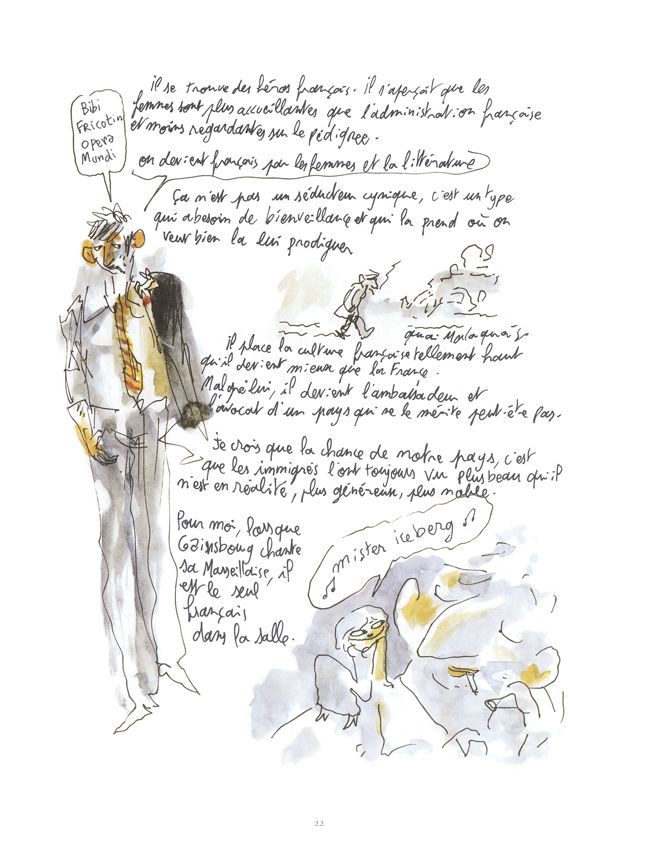 il se trouve des héros français. Il s'aperçoit que les
femmes sont plus accueillantes que l'administration française
et moins regardantes sur le pédigree.
Bibi
Fricotin
opera
Mundi
on devient français par les femmes et la littérature
ça n'est pas un séducteur cynique, c'est un type
qui a besoin de bienveillance et qui la prend où on
veut bien la lui prodiguer
quai Malaquais
il place la culture française tellement haut
qu'il devient mieux que la France.
Malgré lui, il devient l'ambassadeur et
l'avocat d'un pays qui ne le mérite peut-être pas.
Je crois que la chance de notre pays, c'est
que les immigrés l'ont toujours vu plus beau qu'il
n'est en réalité, plus généreux, plus noble.
Pour moi, lorsque
Gainsbourg chante
sa Marseillaise, il
est le seul
français
dans la salle.
♫ mister iceberg ♫
22